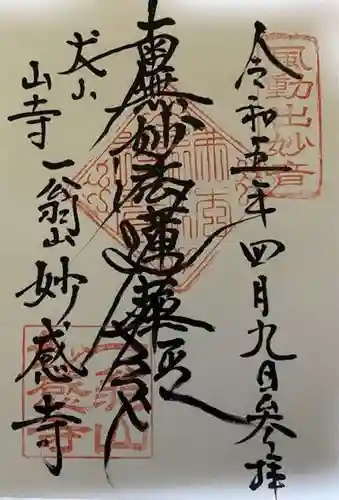 令和五年四月九日参拝
風動出妙音
南無妙法蓮華経
犬山
山寺
一翁山妙感寺